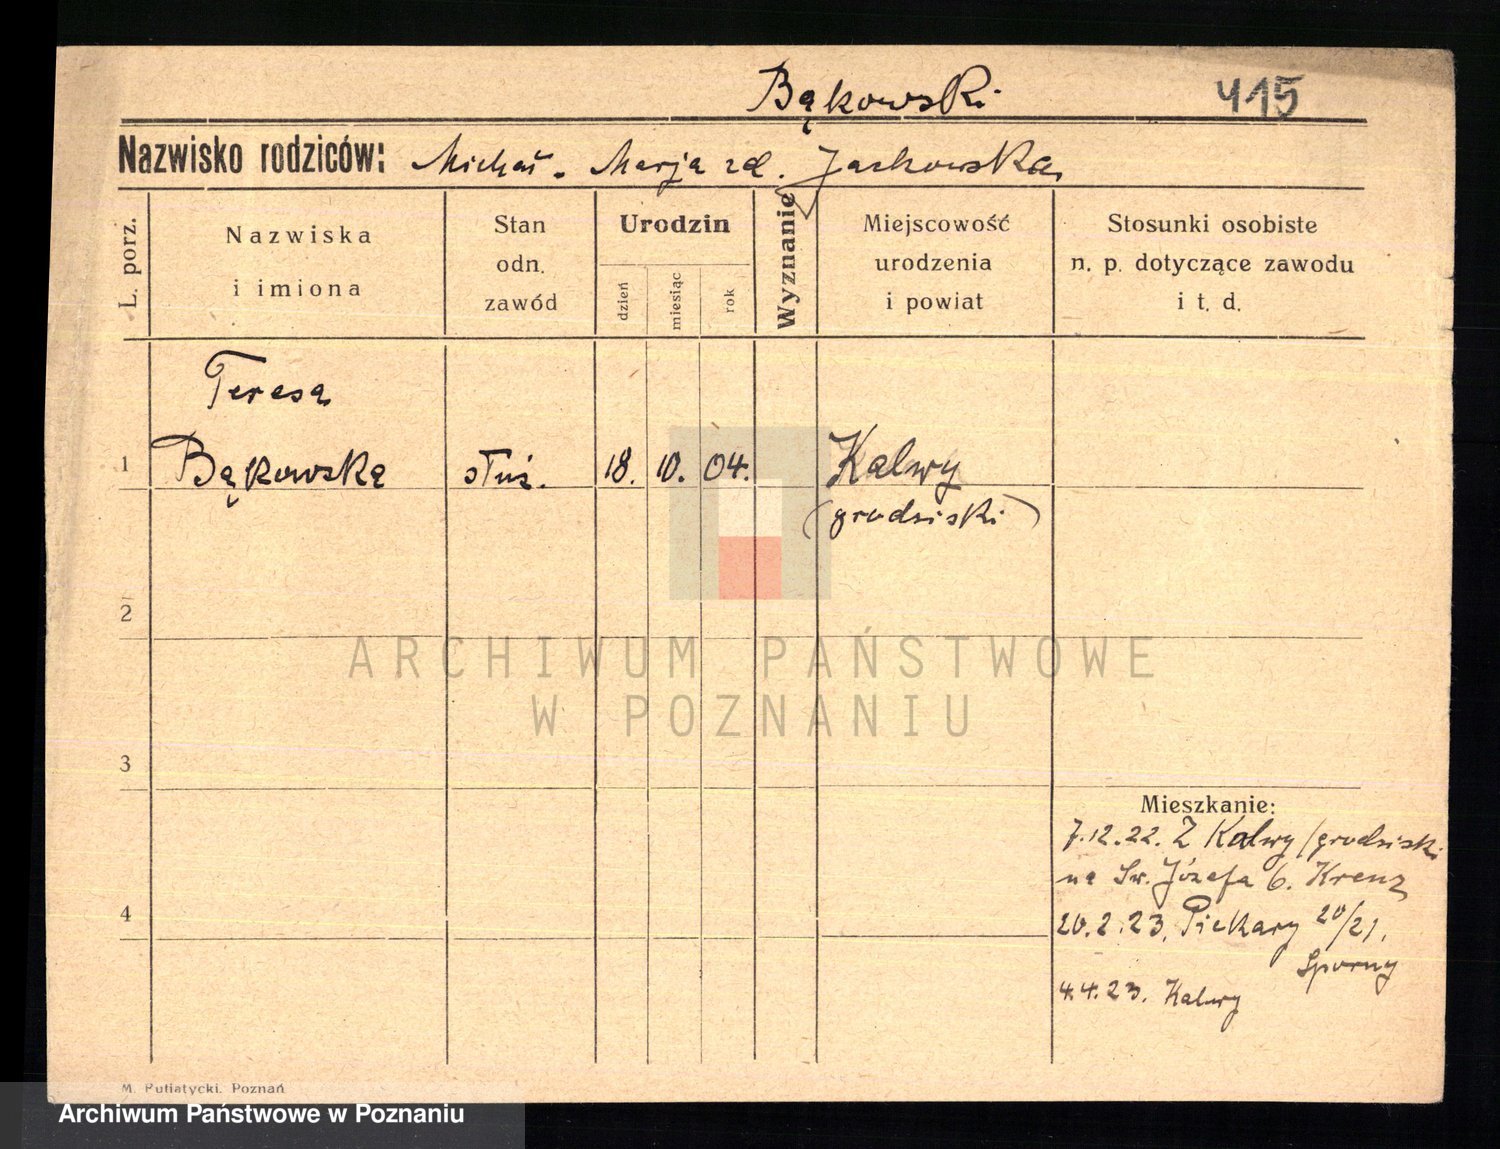 Bąkowski 415
Nazwisko rodziców: Michał. Marja zd. Jackowska
L. porz.
Nazwiska
i imiona
Stan
odn.
zawód
Urodzin
dzień
miesiąc
rok
Wyznanie
Miejscowość
urodzenia
i powiat
Stosunki osobiste
n. p. dotyczące zawodu
i t. d.
Teresa
1 Bąkowska służ. 18. 10. 04. Kalwy
(grodziski)
2
ARCHIWUM PAŃSTWOWE
W POZNANIU
3
Mieszkanie:
7.12.22. Z Kalwy /grodziski
na Św. Józefa 6. Krenz
4
20.2.23. Piekary 20/21.
Sporny
4.4.23. Kalwy
M. Putiatycki. Poznań
Archiwum Państwowe w Poznaniu